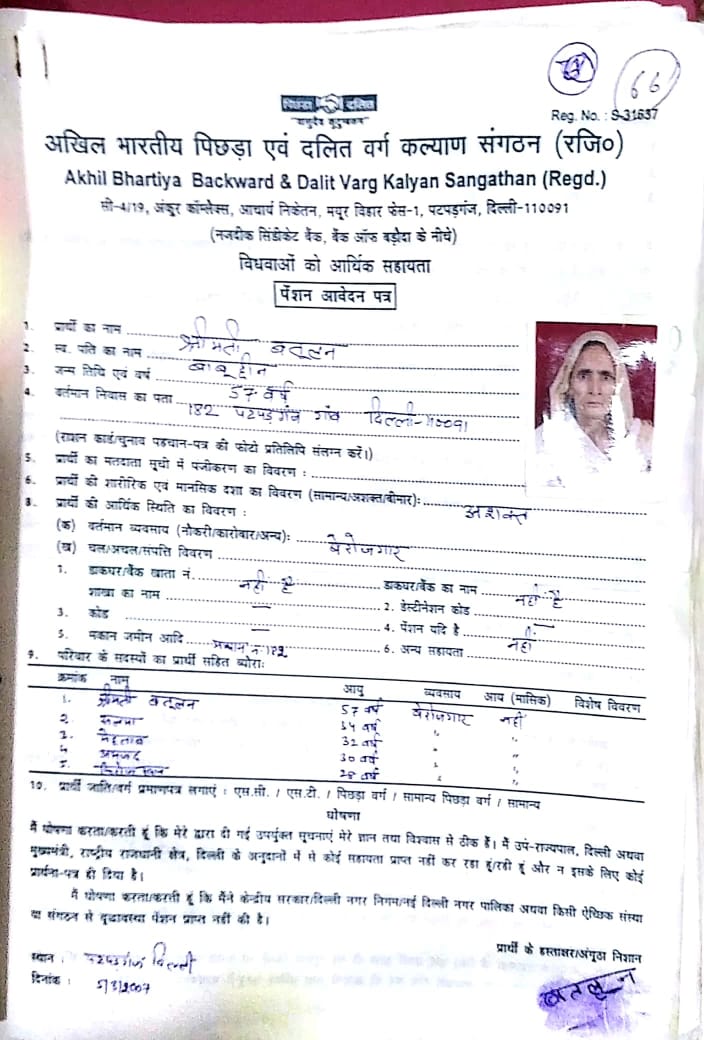 66
पिछड़ा दलित
"वासुदेव कुटुम्बकम"
Reg. No. : S-31637
अखिल भारतीय पिछड़ा एवं दलित वर्ग कल्याण संगठन (रजि०)
Akhil Bhartiya Backward & Dalit Varg Kalyan Sangathan (Regd.)
सी-4/19, अंकुर कॉम्प्लेक्स, आचार्य निकेतन, मयूर विहार फेस-1, पटपड़गंज, दिल्ली-110091
(नजदीक सिंडीकेट बैंक, बैंक ऑफ बड़ौदा के नीचे)
विधवाओं को आर्थिक सहायता
पेंशन आवेदन पत्र
1. प्रार्थी का नाम श्रीमती बतूलन
2. स्व. पति का नाम बाबूद्दीन
3. जन्म तिथि एवं वर्ष 57 वर्ष
4. वर्तमान निवास का पता 182 पटपड़गंज गांव दिल्ली-110091
(राशन कार्ड/चुनाव पहचान-पत्र की फोटो प्रतिलिपि संलग्न करें।)
5. प्रार्थी का मतदाता सूची में पंजीकरण का विवरण :
6. प्रार्थी की शारीरिक एवं मानसिक दशा का विवरण (सामान्य/अशक्त/बीमार): अशक्त
8. प्रार्थी की आर्थिक स्थिति का विवरण :
(क) वर्तमान व्यवसाय (नौकरी/कारोबार/अन्य): बेरोजगार
(ख) चल/अचल/संपत्ति विवरण
1. डाकघर/बैंक खाता नं. नहीं है डाकघर/बैंक का नाम नहीं है
शाखा का नाम — 2. डेस्टीनेशन कोड —
3. कोड — 4. पेंशन यदि है
5. मकान जमीन आदि मकान न. 182 6. अन्य सहायता नहीं
9. परिवार के सदस्यों का प्रार्थी सहित ब्योराः
क्रमांक नाम आयु व्यवसाय आय (मासिक) विशेष विवरण
1. श्रीमती बतूलन 57 वर्ष बेरोजगार नहीं
2. सलमा 34 वर्ष " "
3. मेहताब 32 वर्ष " "
4. अमजद 30 वर्ष " "
5. 28 वर्ष " "
10. प्रार्थी जाति/वर्ग प्रमाणपत्र लगाएं : एस.सी. / एस.टी. / पिछड़ा वर्ग / सामान्य पिछड़ा वर्ग / सामान्य
घोषणा
मैं घोषणा करता/करती हूं कि मेरे द्वारा दी गई उपर्युक्त सूचनाएं मेरे ज्ञान तथा विश्वास से ठीक हैं। मैं उप-राज्यपाल, दिल्ली अथवा
मुख्यमंत्री, राष्ट्रीय राजधानी क्षेत्र, दिल्ली के अनुदानों में से कोई सहायता प्राप्त नहीं कर रहा हूं/रही हूं और न इसके लिए कोई
प्रार्थना-पत्र ही दिया है।
मैं घोषणा करता/करती हूं कि मैंने केन्द्रीय सरकार/दिल्ली नगर निगम/नई दिल्ली नगर पालिका अथवा किसी ऐच्छिक संस्था
या संगठन से वृद्धावस्था पेंशन प्राप्त नहीं की है।
प्रार्थी के हस्ताक्षर/अंगूठा निशान
स्थान : पटपड़गंज दिल्ली
दिनांक : 5/3/2007
बतलून